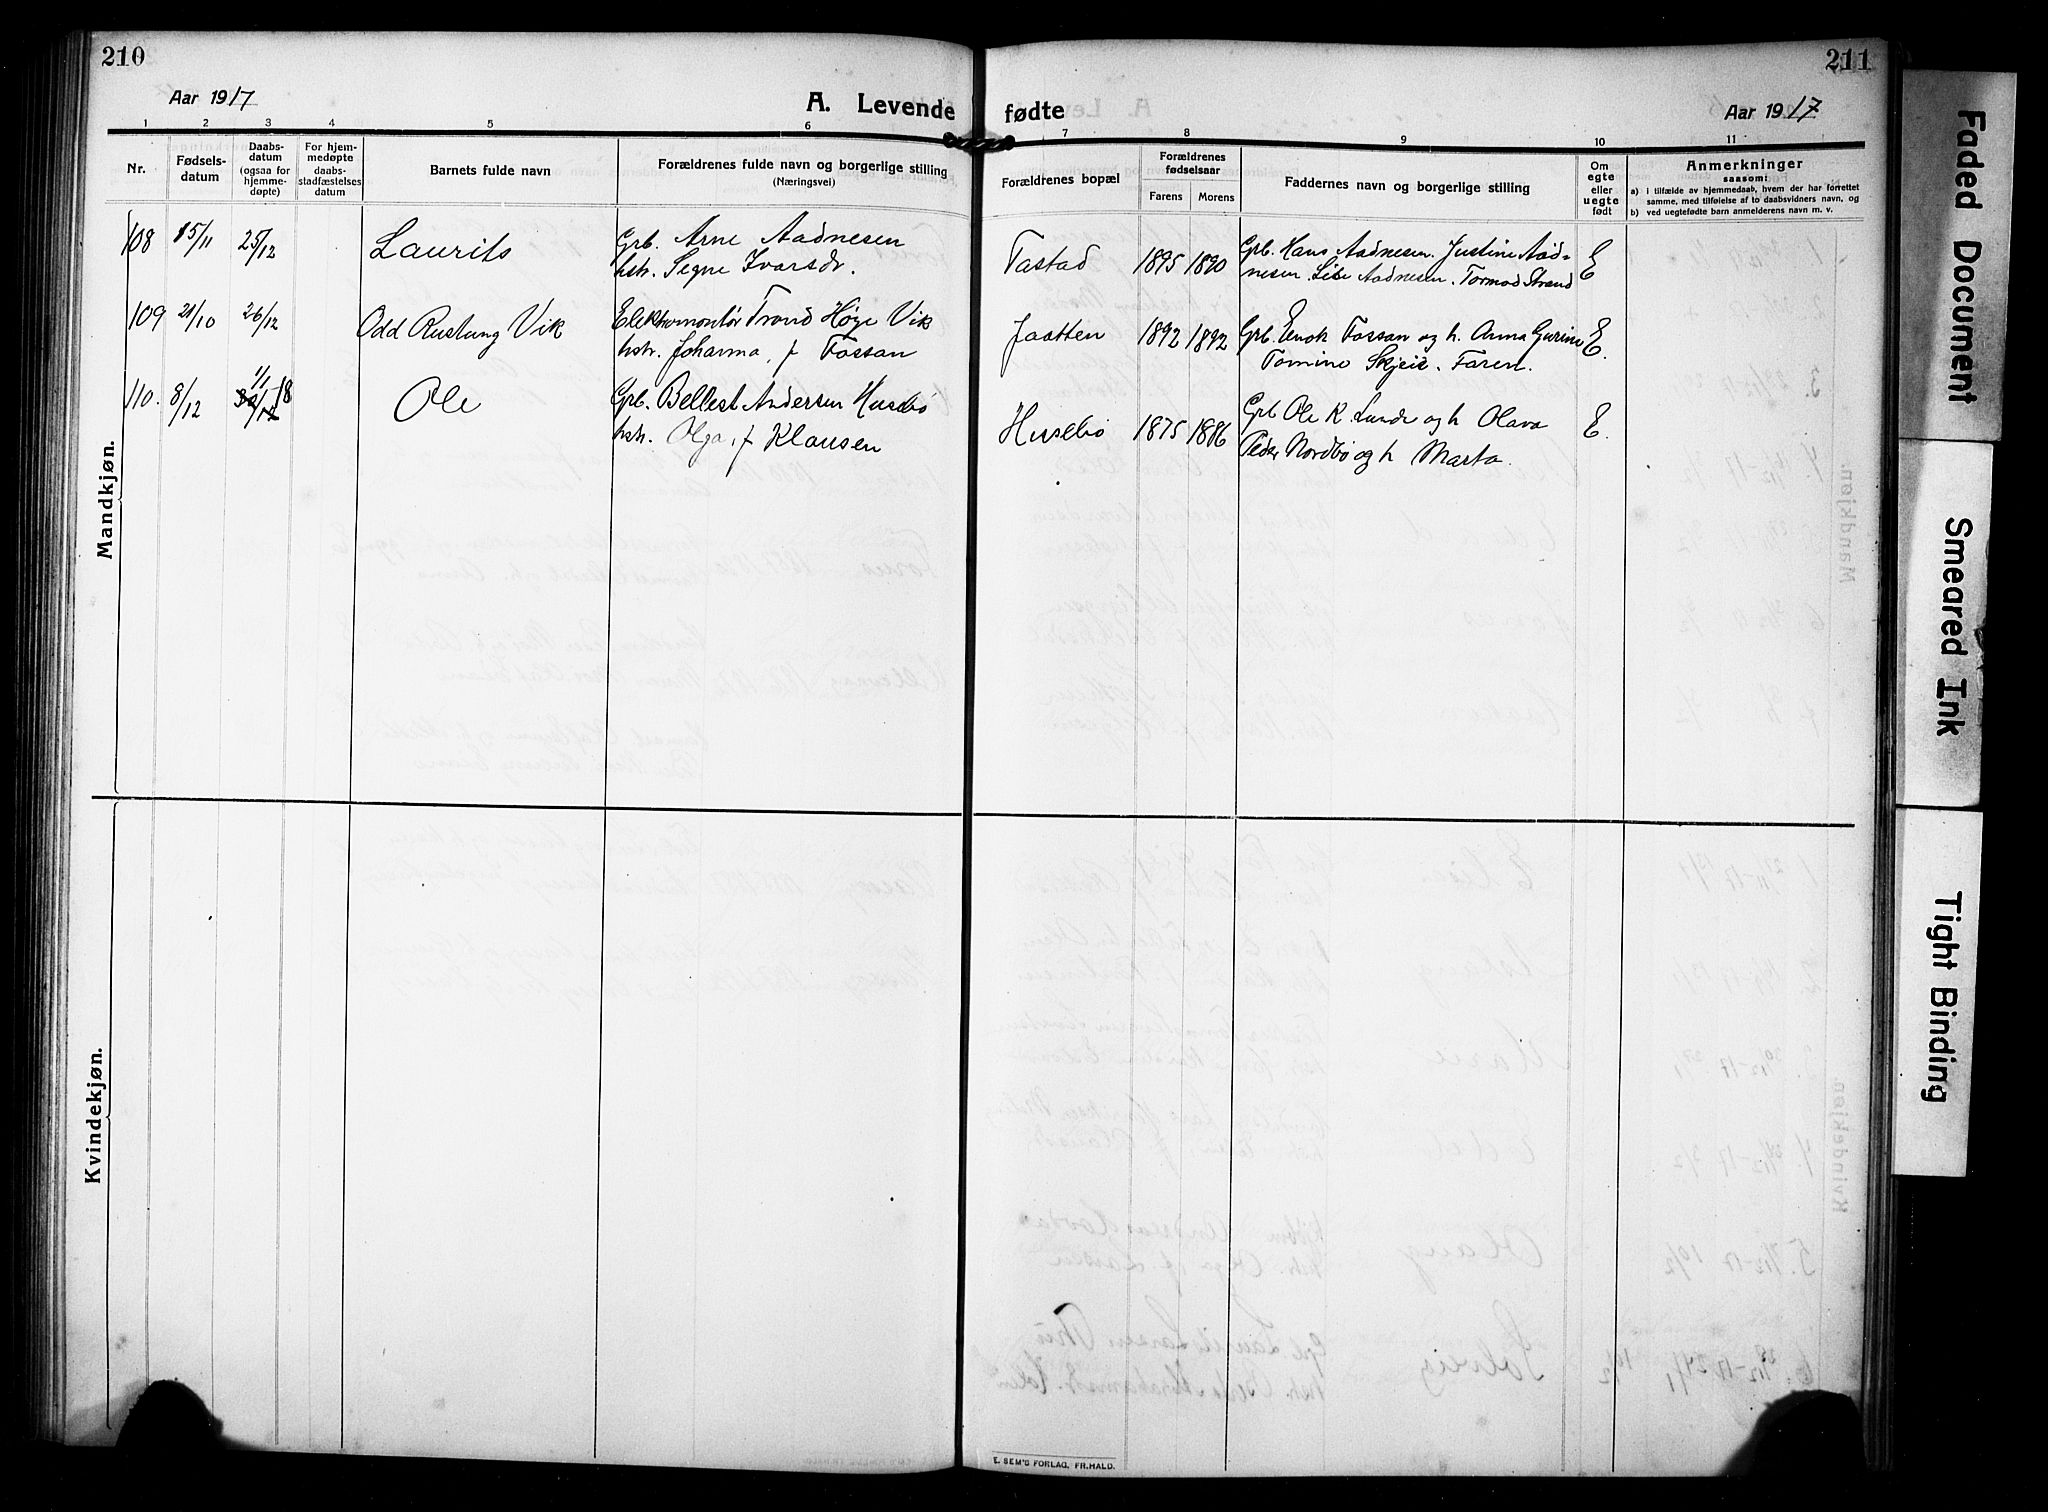 210
211
Aar 1917
A. Levende fødte
Aar 1917
1 2 3 4 5 6 7 8 9 10 11
Nr.
Fødsels-
datum
Daabs-
datum
(ogsaa for
hjemme-
døpte)
For hjem-
medøpte
daabs-
stadfæstelses
datum
Barnets fulde navn
Forældrenes fulde navn og borgerlige stilling
(Næringsvei)
Forældrenes bopæl
Forældrenes
fødselsaar
Farens Morens
Faddernes navn og borgerlige stilling
Om
egte
eller
uegte
født
Anmerkninger
saasom:
a) i tilfælde av hjemmedaab, hvem der har forrettet
samme, med tilføielse af to daabsvidners navn, og
b) ved uegtefødte barn anmelderens navn m. v.
108 15/11 25/12 Laurits Grb. Arne Aadnesen Tastad 1895 1890 Grb. Hans Aadnesen. Justine Aad- E
hstr. Segne Ivarsdr. nesen. Lise Aadnesen. Tormod Strand
109 21/10 26/12 Odd Rustung Vik Elektromontør Trond Høge Vik Jaatten 1892 1892 Grb. Enok Fossan og h. Anna Gurine E.
hstr. Johanna, f Fossan Tomine Skjeie. Faren.
110. 8/12 30/12 1/1 18 Ole Grb. Bellest Andersen Husebø Husebø 1875 1886 Grb Ole K. Lunde og h Olava E.
hstr. Olga, f Klausen Peder Nordbø og h Marta.
Mandkjøn.
Kvindekjøn.
E. SEM'S FORLAG, FR.HALD.
Faded Document
Smeared Ink
Tight Binding